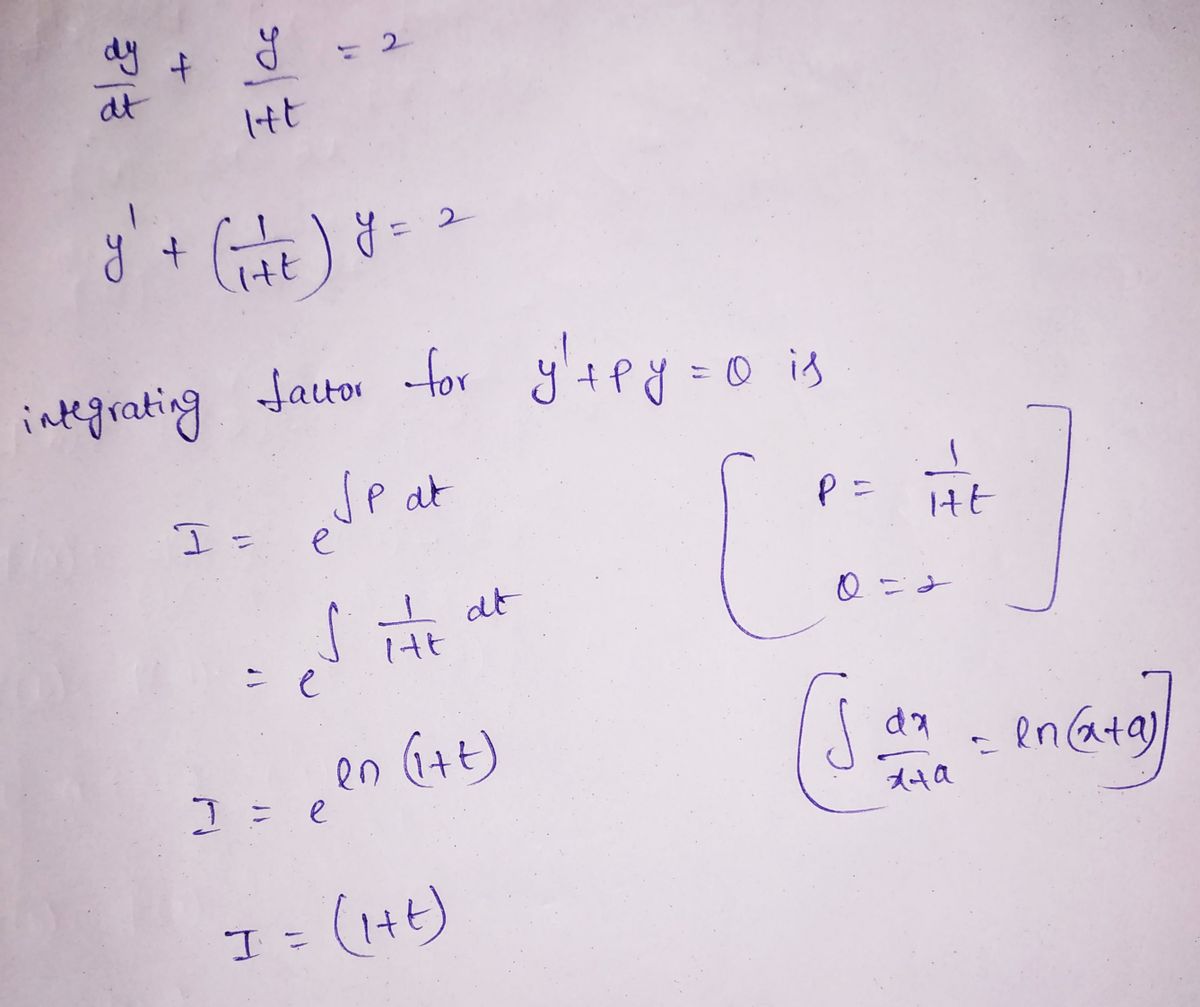 dy/dt + y/1+t = 2
y' + (1/1+t) y = 2
integrating factor for y' + P y = Q is
I = e^∫P dt
[P = 1/1+t
Q = 2]
= e^∫ 1/1+t dt
I = e^ln (1+t)
[∫ dx/x+a = ln(x+a)]
I = (1+t)